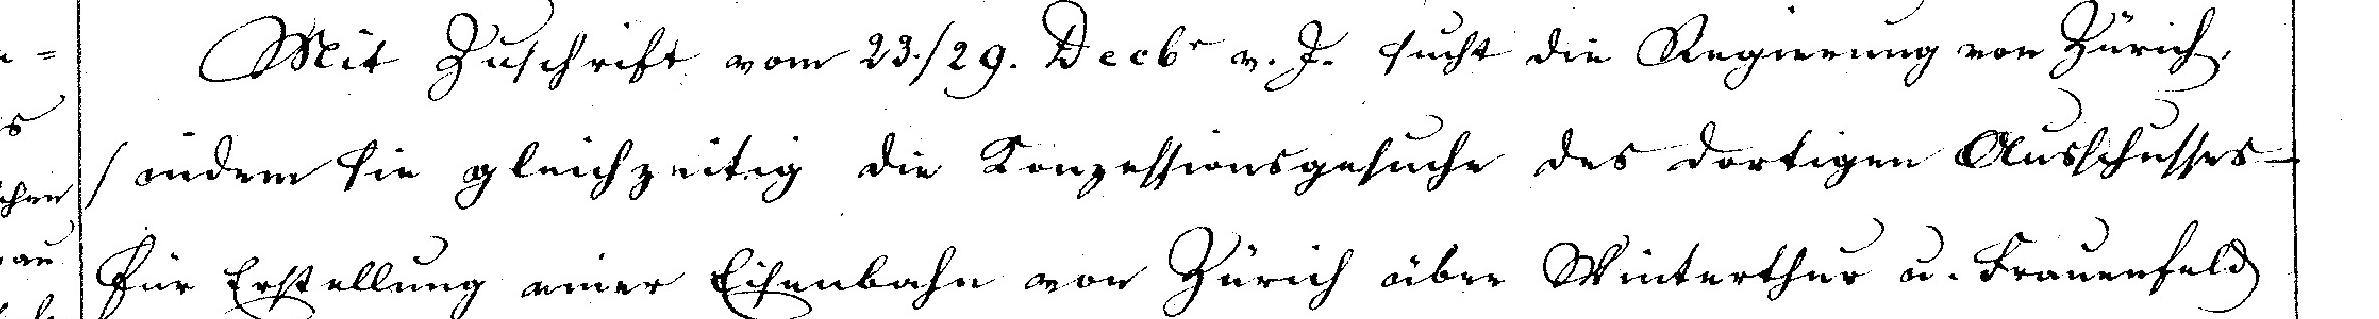 Mit Zuschrift vom 23./29. Decbr v. J. sucht die Regierung von Zürich,
/ indem sie gleichzeitig die Konzessionsgesuche des dortigen Ausschusses
für Erstellung einer Eisenbahn von Zürich über Winterthur u. Frauenfeld